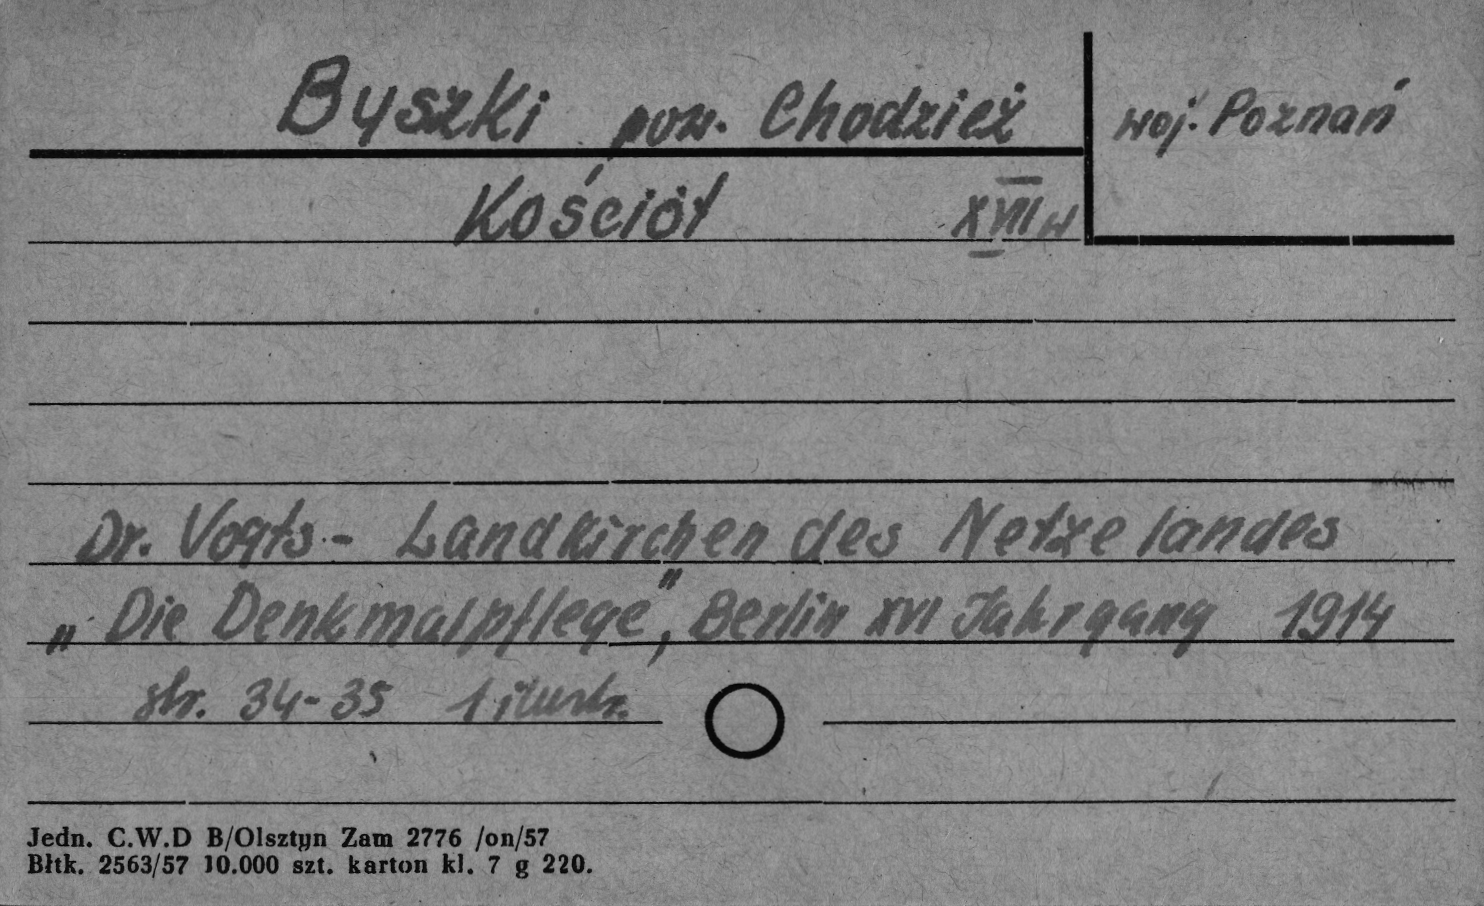 Byszki pow. Chodzież woj. Poznań
Kościół XVII w
Dr. Vogts - Landkirchen des Netzelandes
„Die Denkmalpflege", Berlin XVI Jahrgang 1914
str. 34-35 1 ilustr.
Jedn. C.W.D B/Olsztyn Zam 2776 /on/57
Błtk. 2563/57 10.000 szt. karton kl. 7 g 220.